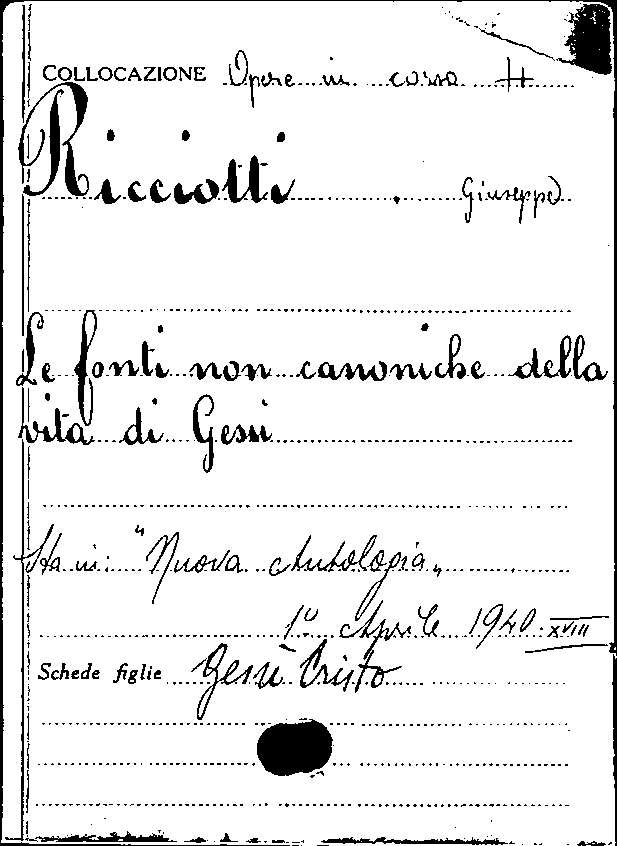 COLLOCAZIONE Opere in corso H
Ricciotti . Giuseppe
Le fonti non canoniche della
vita di Gesù
Sta in: "Nuova Antologia„
1º Aprile 1940.XVIII
Schede figlie Gesù Cristo